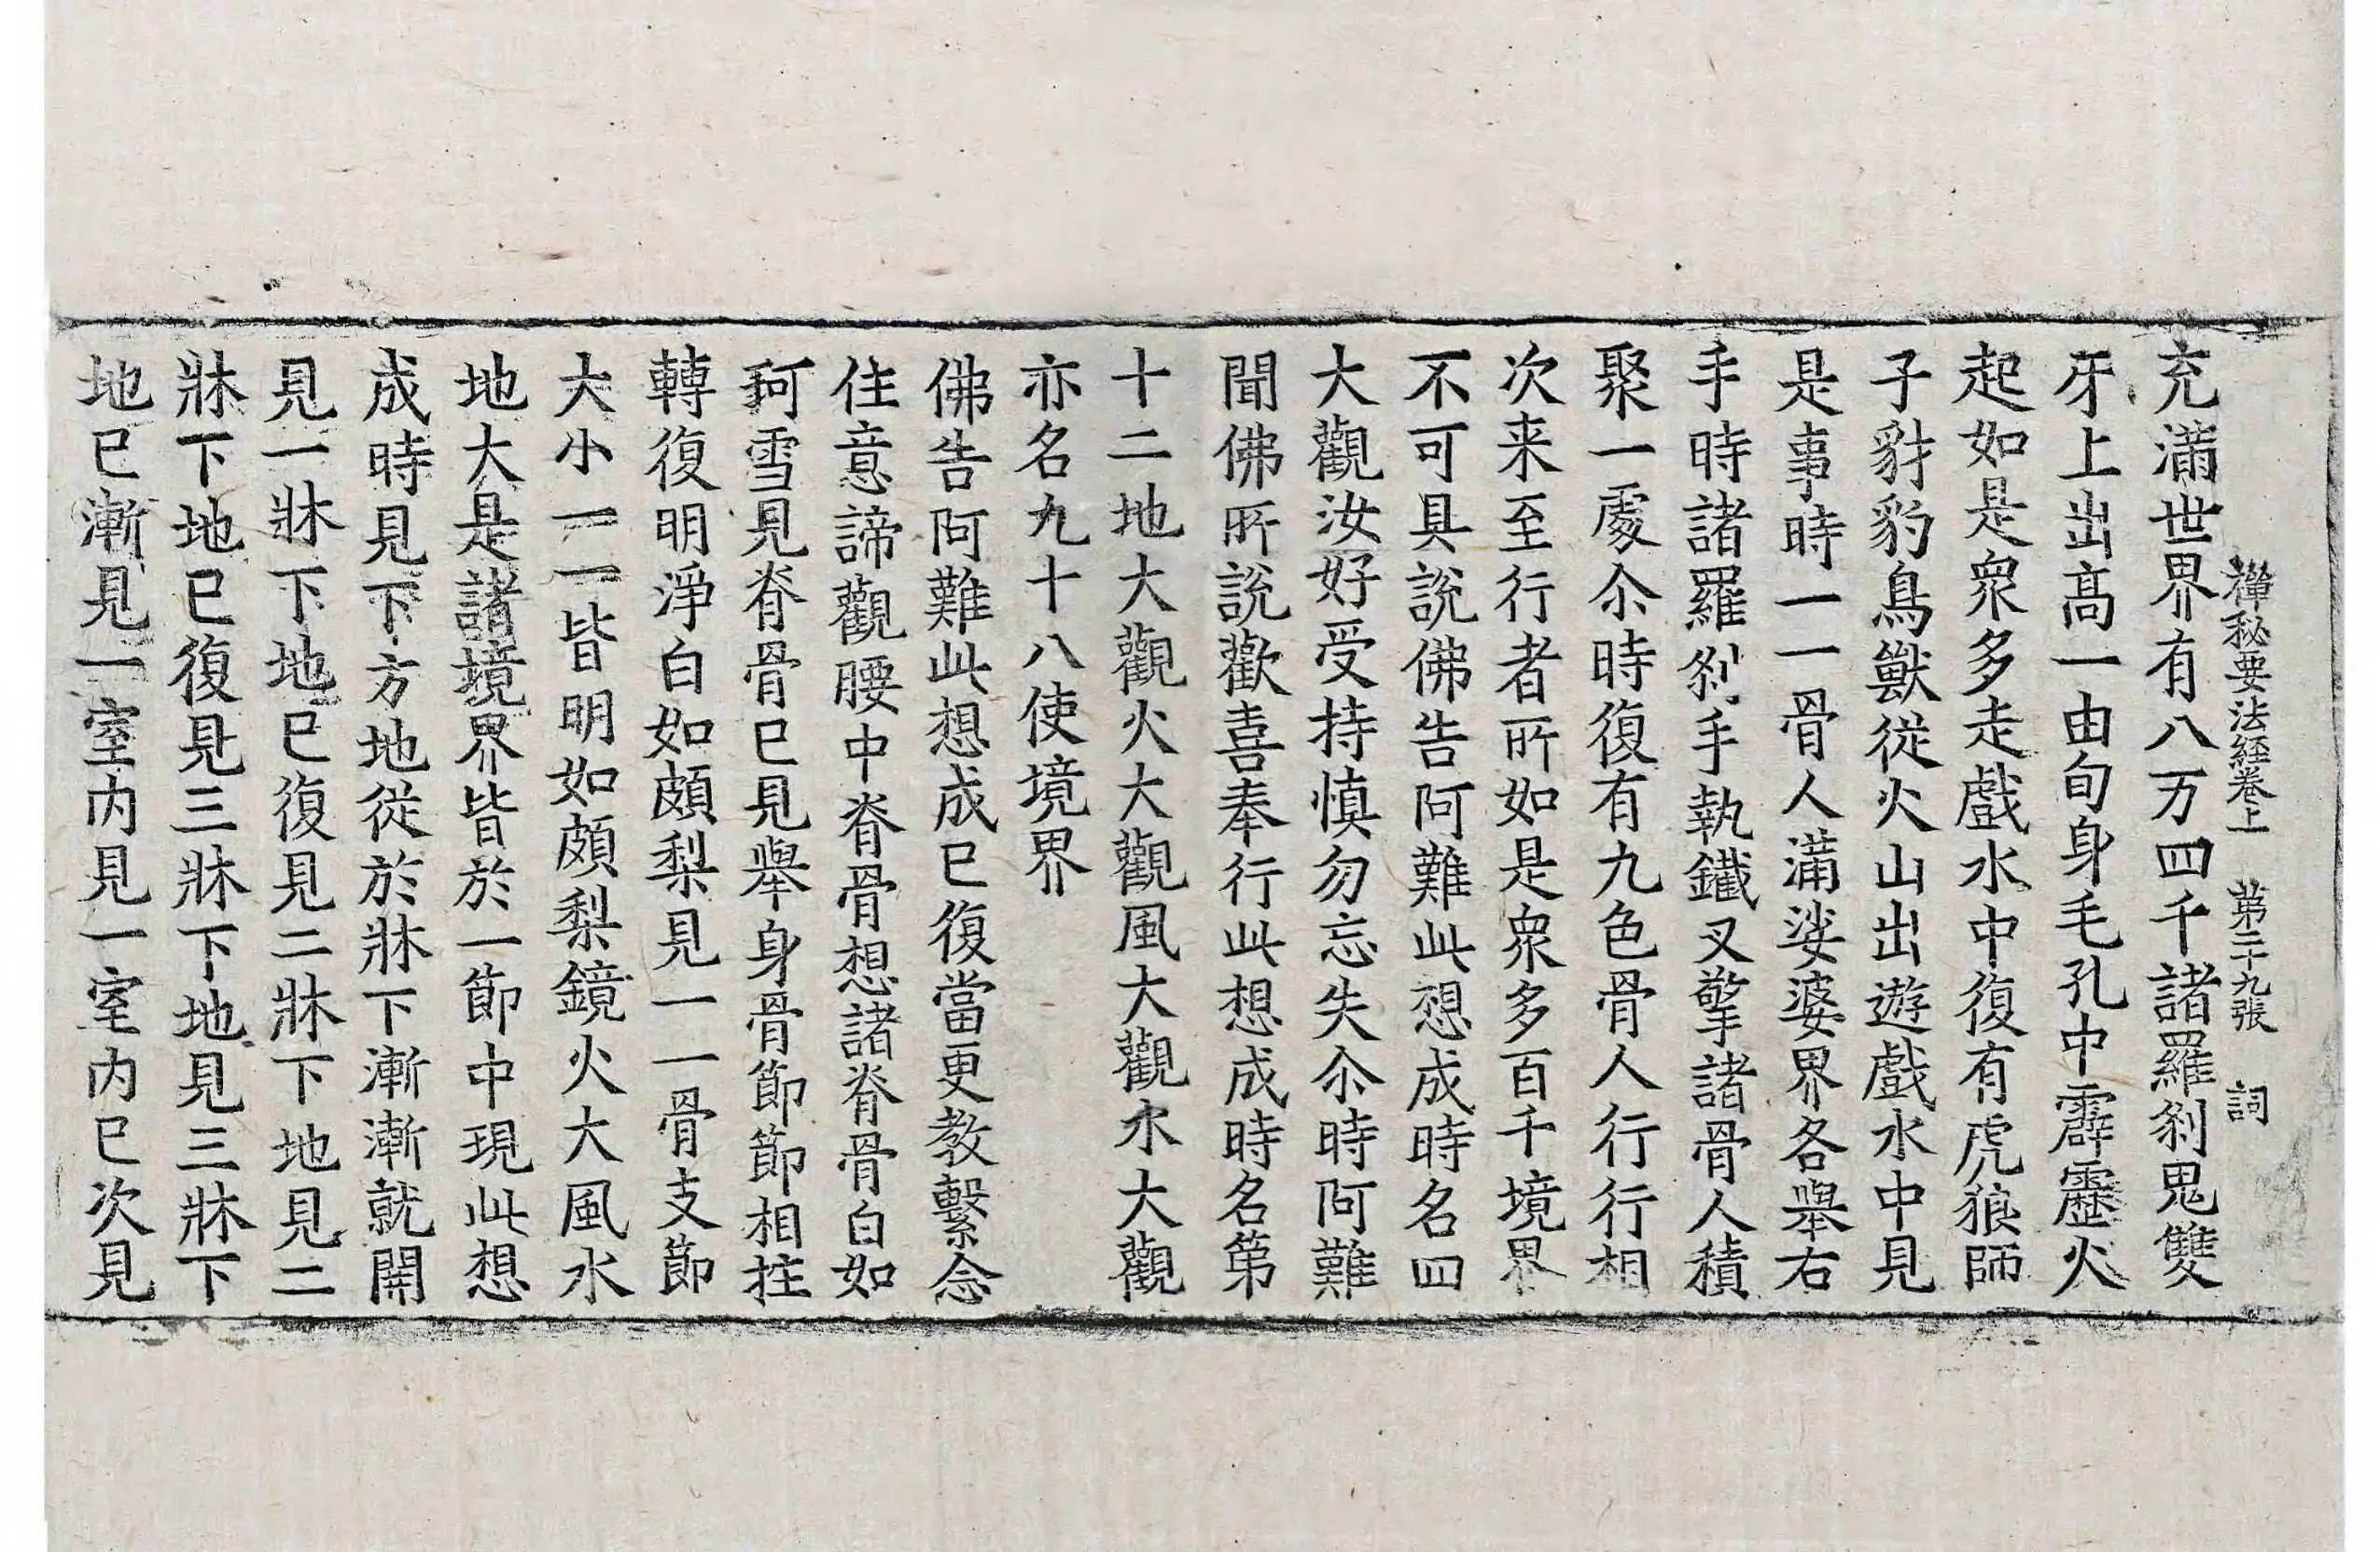 禪秘要法経卷上 第二十九張 詞
充滿世界有八万四千諸羅刹鬼雙
牙上出高一由旬身毛孔中霹靂火
起如是衆多走戲水中復有虎狼師
子豺豹鳥獸従火山出遊戲水中見
是事時一一骨人滿娑婆界各舉右
手時諸羅刹手執鐵叉擎諸骨人積
聚一處尒時復有九色骨人行行相
次来至行者所如是衆多百千境界
不可具説佛告阿難此想成時名四
大觀汝好受持慎勿忘失尒時阿難
聞佛所説歡喜奉行此想成時名第
十二地大觀火大觀風大觀水大觀
亦名九十八使境界
佛告阿難此想成已復當更教繫念
住意諦觀腰中脊骨想諸脊骨白如
珂雪見脊骨已見舉身骨節節相拄
轉復明淨白如頗梨見一一骨支節
大小一一皆明如頗梨鏡火大風水
地大是諸境界皆於一節中現此想
成時見下方地従於牀下漸漸就開
見一牀下地已復見二牀下地見二
牀下地已復見三牀下地見三牀下
地已漸見一室内見一室内已次見